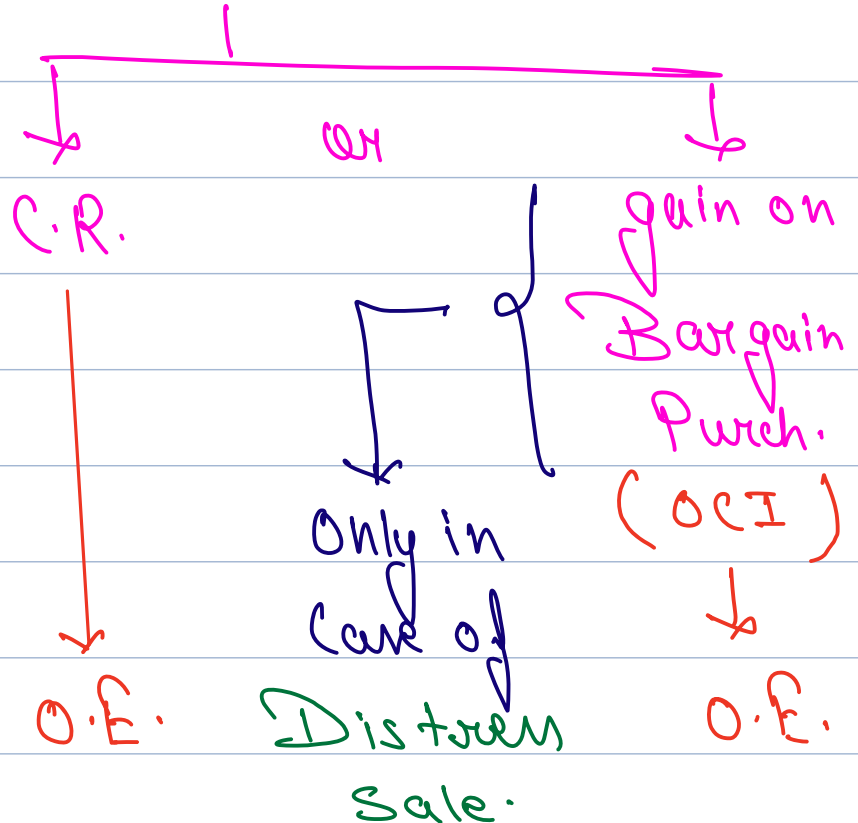 or
C.R.
gain on
Bargain
Purch.
(OCI)
Only in
Case of
Distress
Sale.
O.E.
O.E.